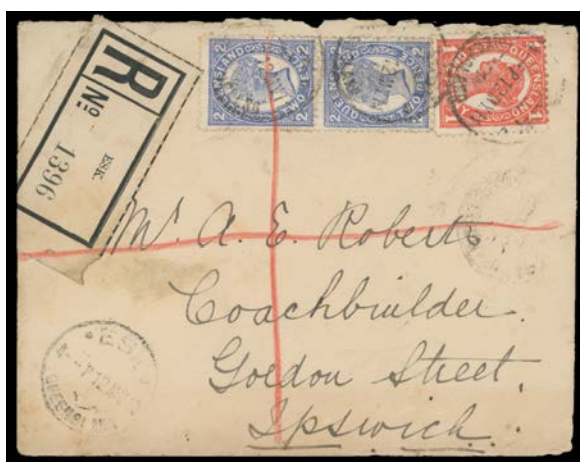 R
No
ESK.
1396
2 QUEENSLAND 2
2 TWO PENCE 2
2 QUEENSLAND 2
2 TWO PENCE 2
QUEENSLAND
1 1
Mr. A. E. Roberts
Coachbuilder.
Gordon Street.
Ipswich.
ESK
QUEENSLAND